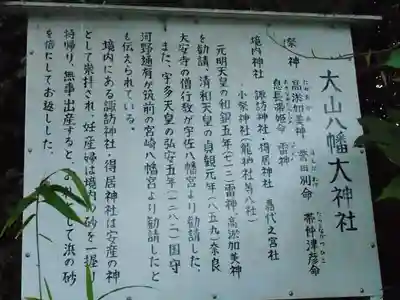 大山八幡大神社
祭神
高淤加美神 誉田別命 帯仲津彦命
息長帯姫命 雷神
境内神社
諏訪神社・得居神社 萬代之宮社
小祭神社(龍神社等八社)
元明天皇の和銅五年(七一二)雷神、高淤加美神
を勧請、清和天皇の貞観元年(八五九)奈良
大安寺の僧行教が宇佐八幡宮より勧請した。
また、宇多天皇の弘安五年(一二八二)国守
河野通有が筑前の宮崎八幡宮より勧請したと
も伝えられる。
境内にある諏訪神社・得居神社は安産の神
として崇拝され、妊産婦は境内の砂を一握り
持帰り、無事出産すると、お礼として浜の砂
を倍にしてお返しした。